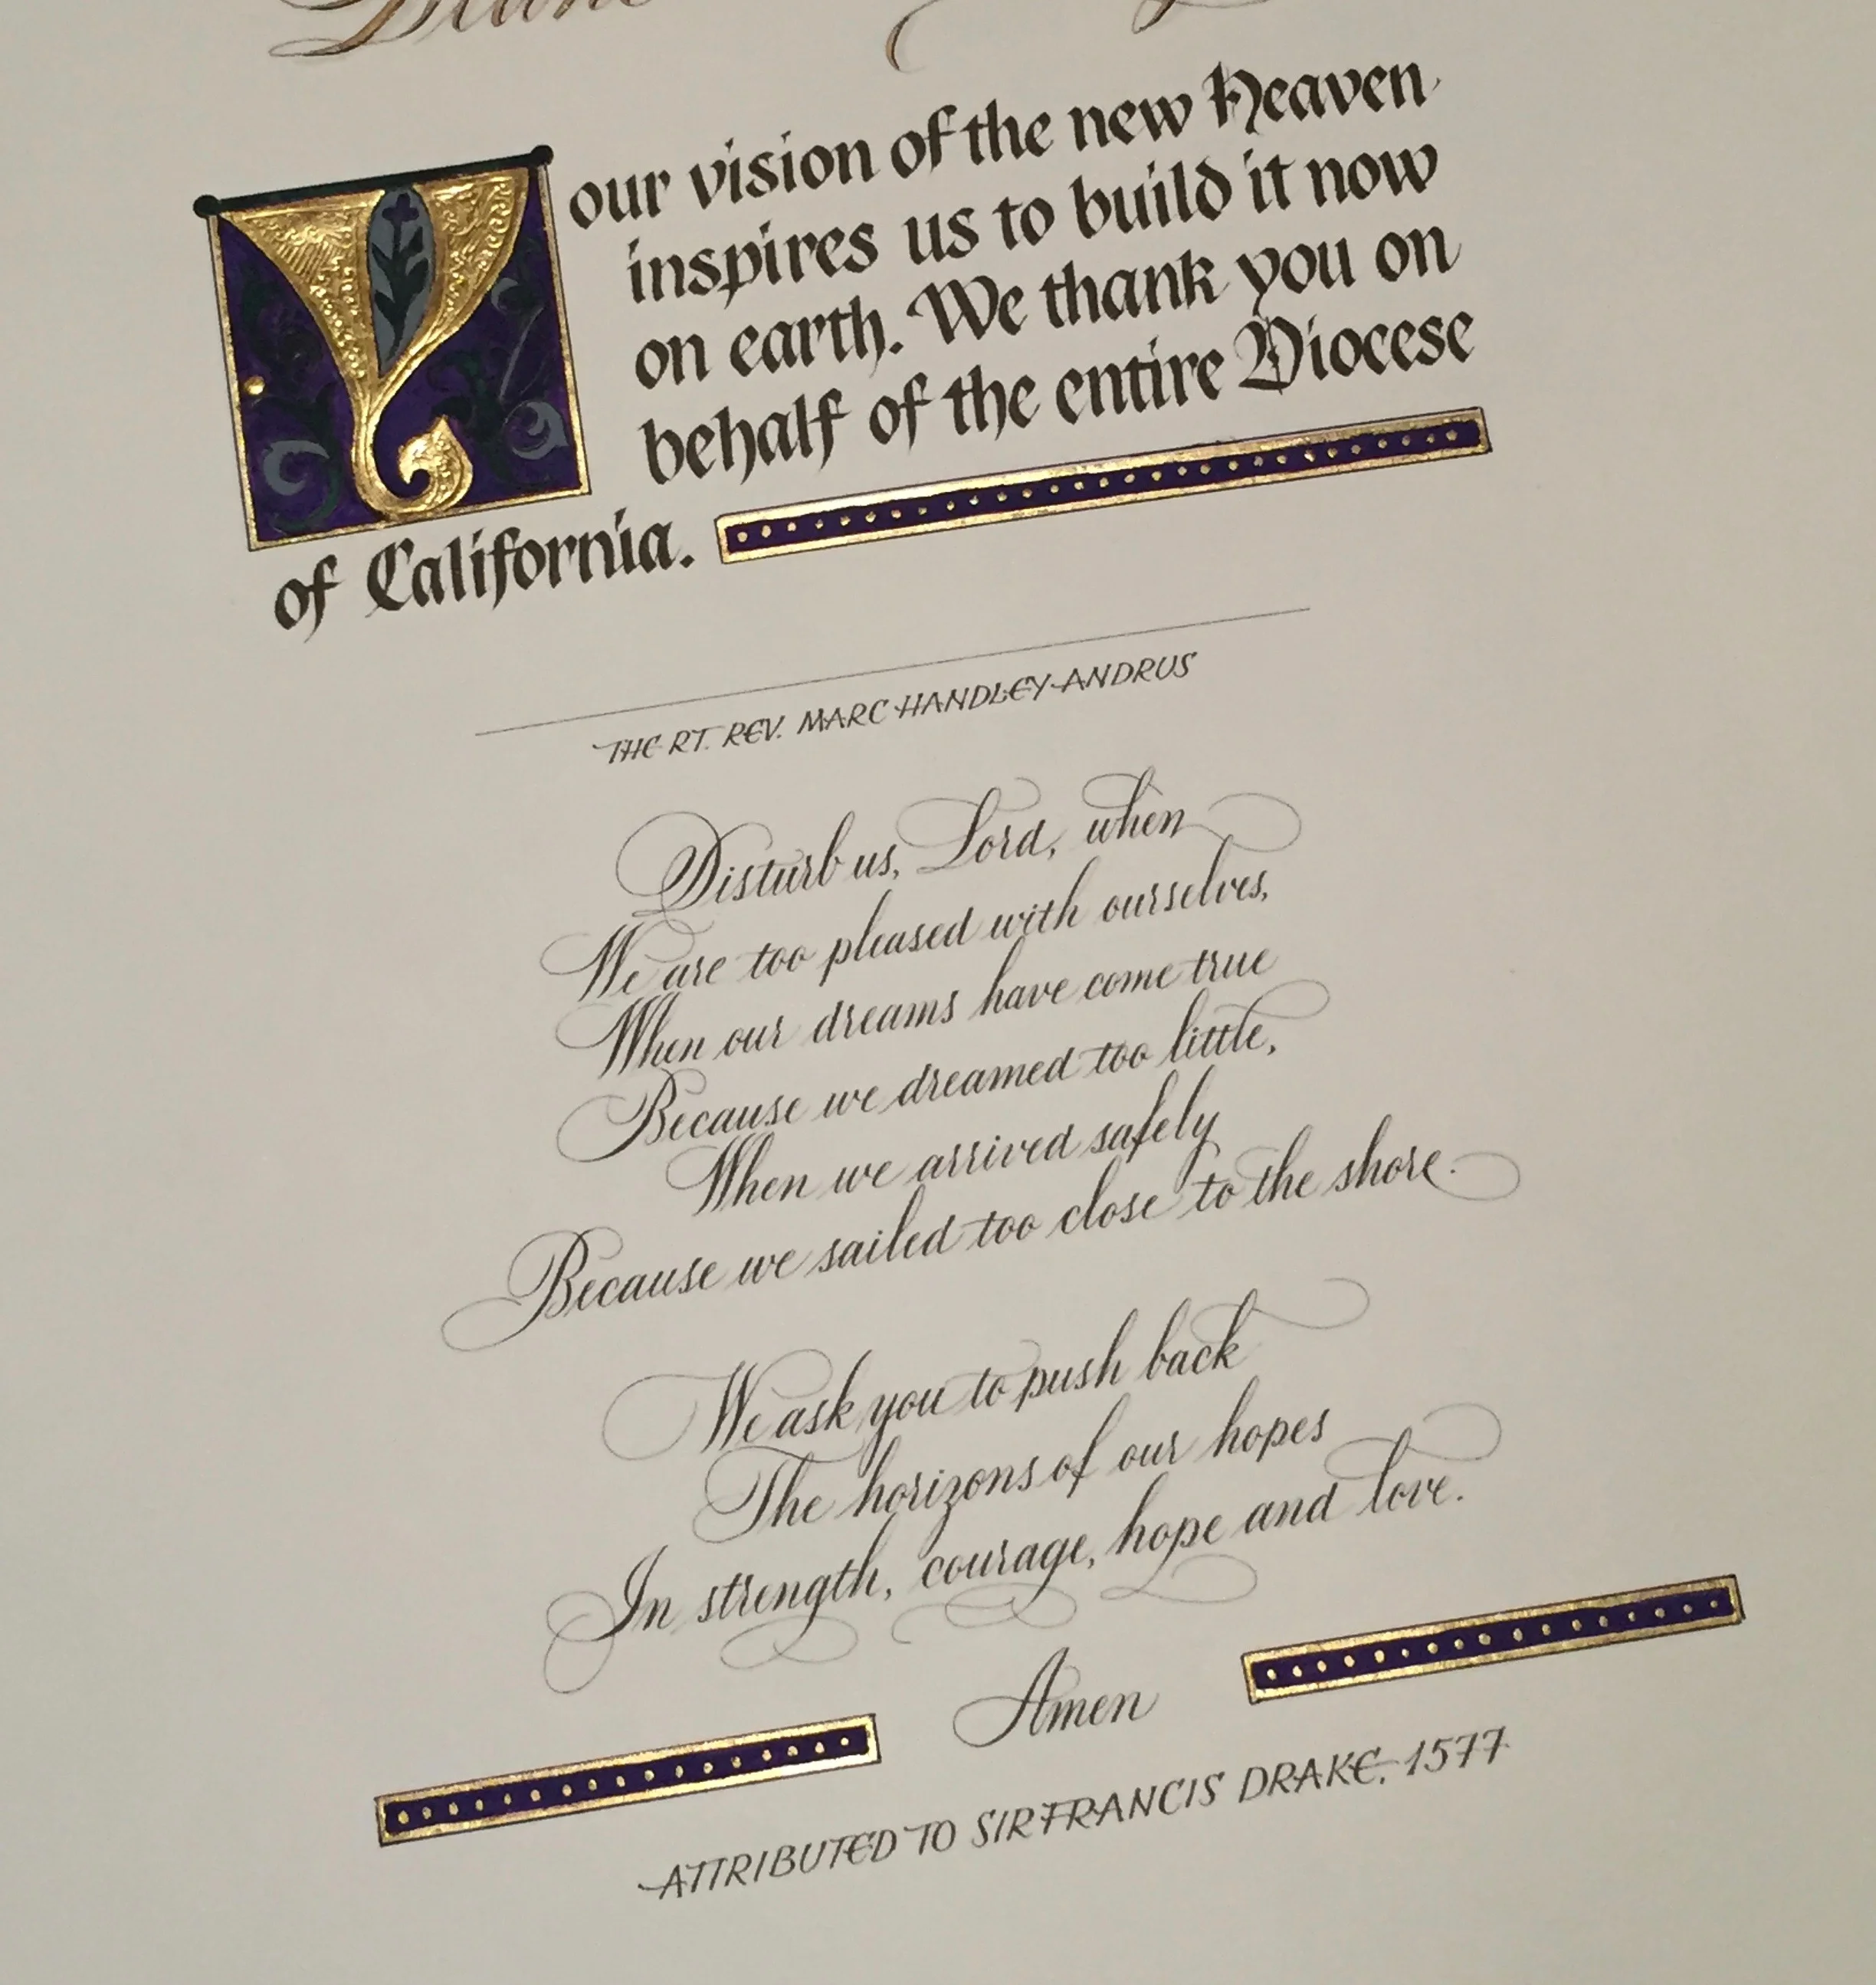 Your vision of the new Heaven
inspires us to build it now
on earth. We thank you on
behalf of the entire Diocese
of California.
THE RT. REV. MARC HANDLEY ANDRUS
Disturb us, Lord, when
We are too pleased with ourselves,
When our dreams have come true
Because we dreamed too little,
When we arrived safely
Because we sailed too close to the shore.
We ask you to push back
The horizons of our hopes
In strength, courage, hope and love.
Amen
ATTRIBUTED TO SIR FRANCIS DRAKE, 1577